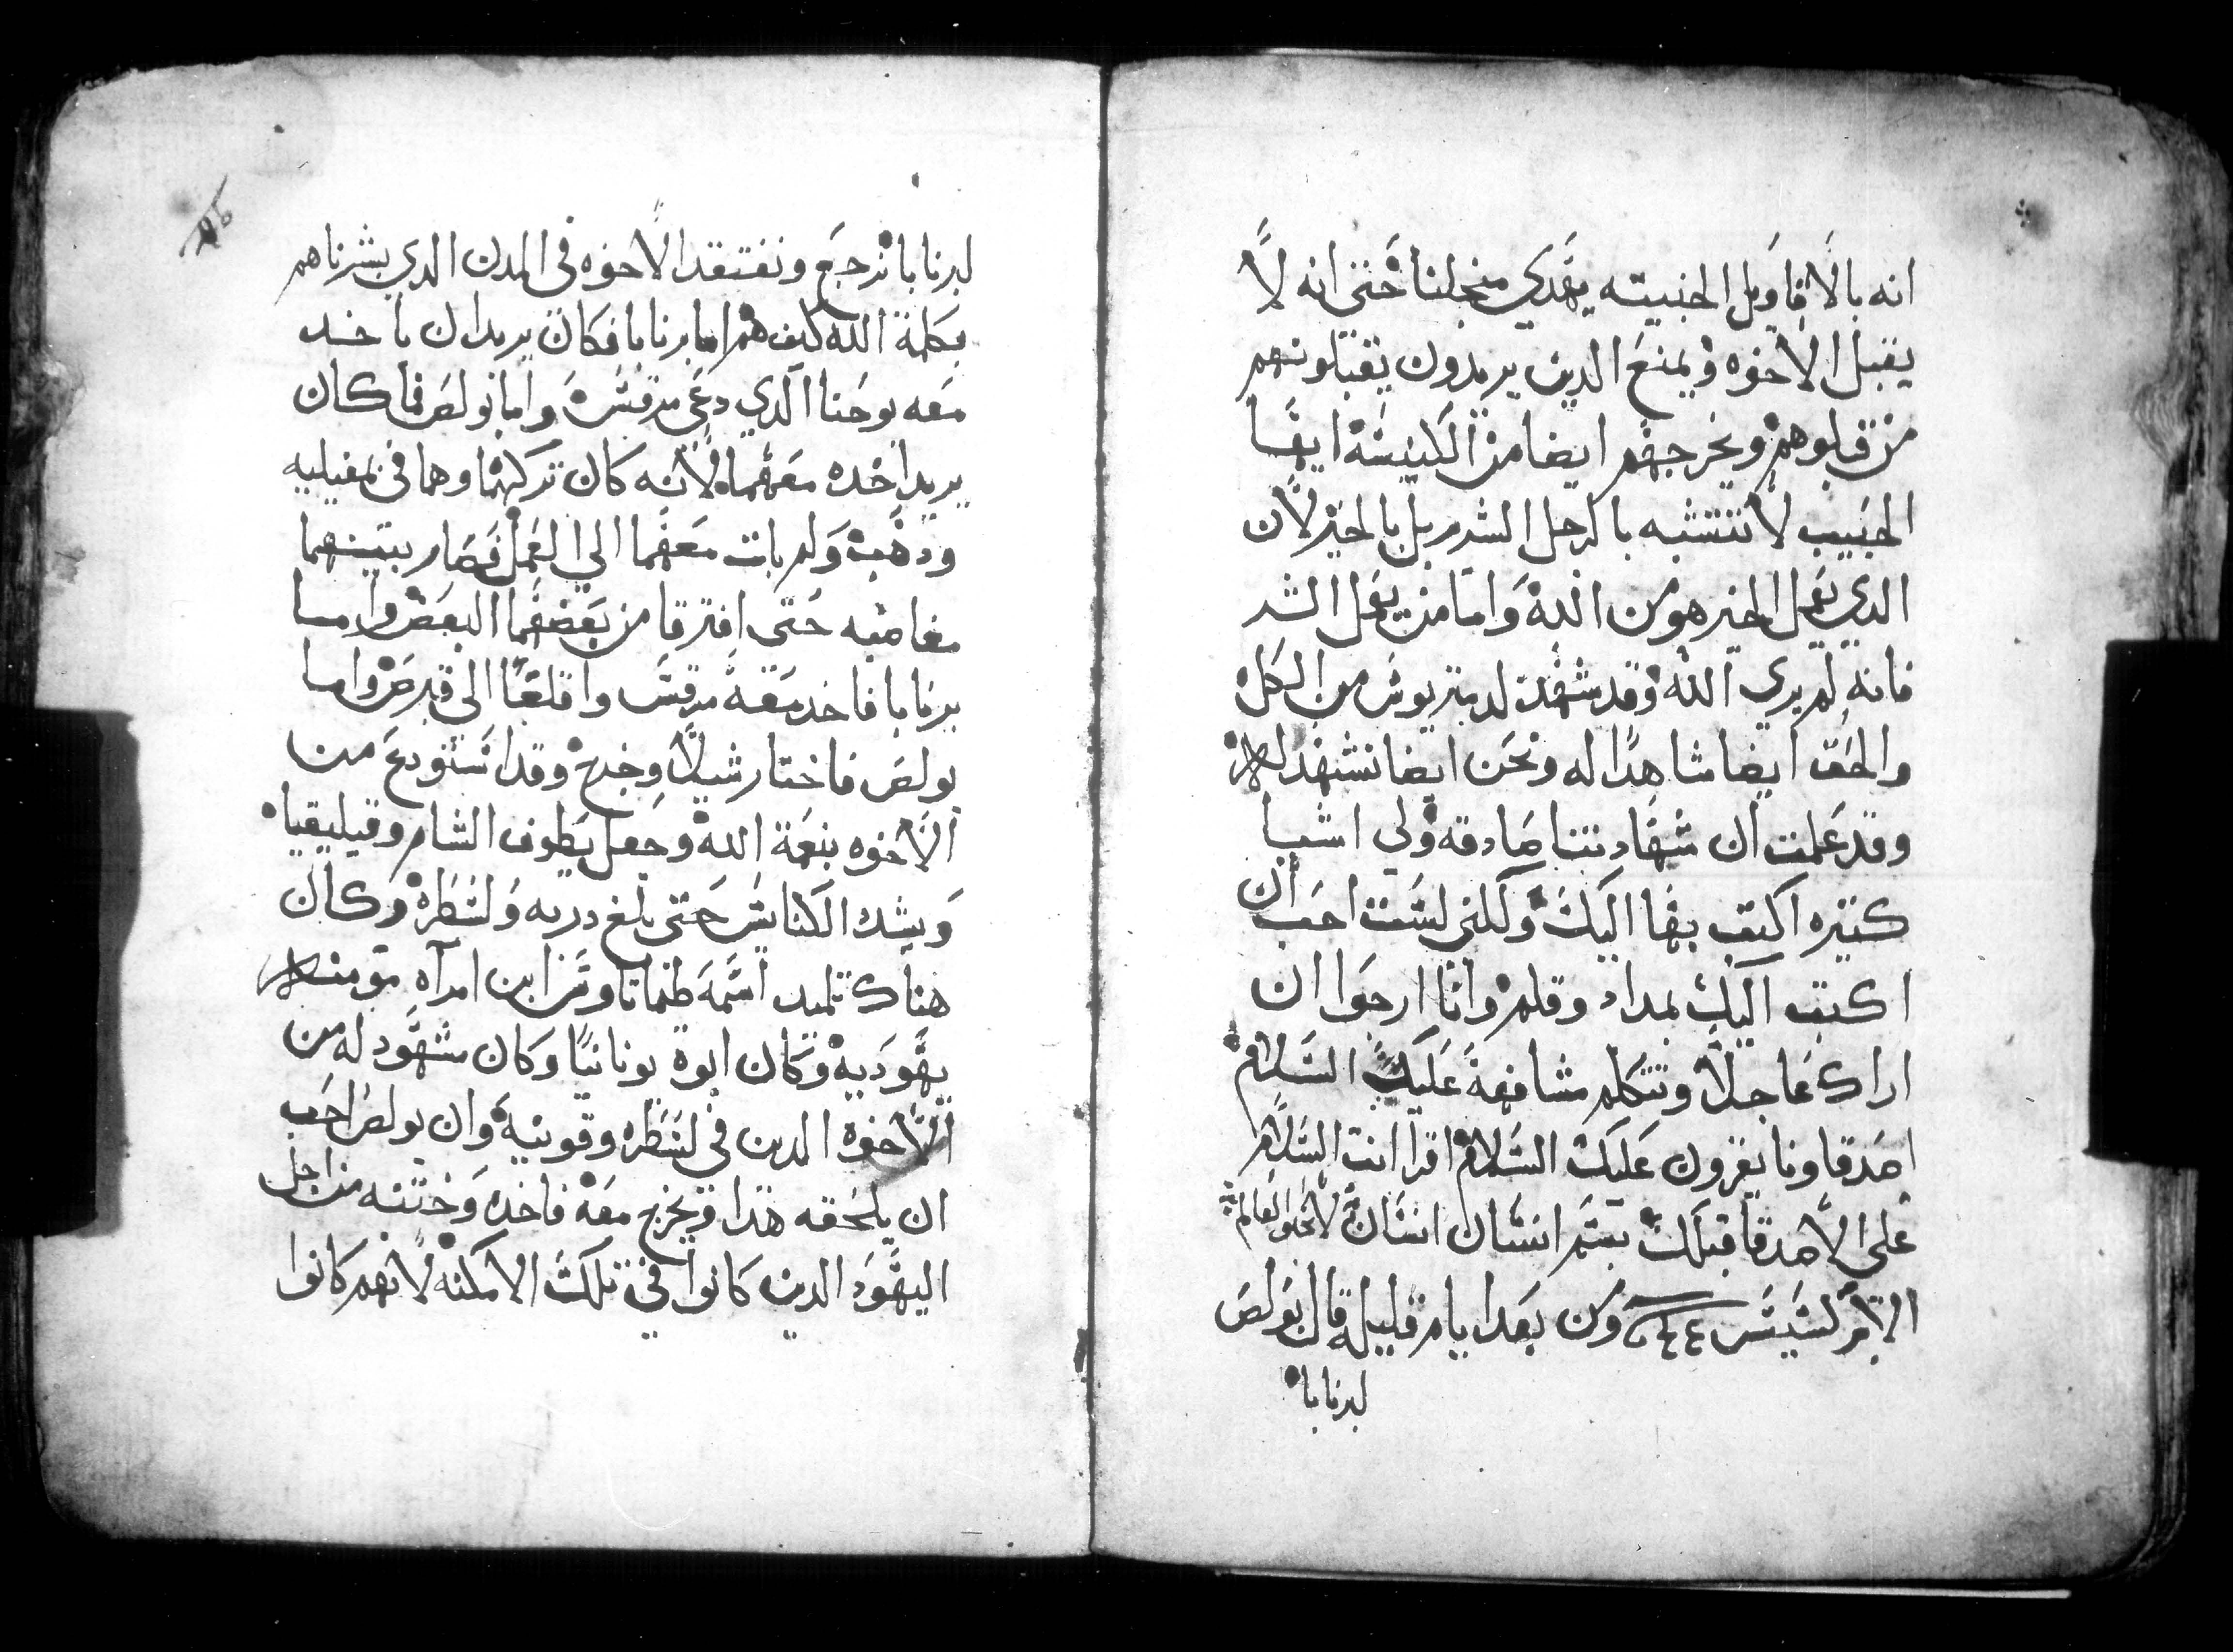 انه بالاقاويل الخبيثه يهدي منجلنا حتى انه لا
يقبل الاخوه ويمنع الدين يريدون يقبلونهم
من قبلوهم ويخرجهم ايضا من الكنيسة ايها
الحبيب لا تتشبه بالرجل الشرير بل بالخير لان
الدي يعمل الخير هو من الله واما من يعمل الشر
فانه لم يري الله وقد شهدت لديمتريوس من الكل
والحق ايضا شاهدا له ونحن ايضا نشهد له
وقد علمت ان شهادتنا صادقه ولي اشيا
كتيره اكتب بها اليك ولكني لست احب ان
اكتب اليك بمداد وقلم وانا ارجوا ان
اراك عاجلا ونتكلم مشافهة عليك السلام
اصدقاونا يقرون عليك السلام اقرا انت السلام
على الاصدقا قبلك بسم انسان انسان لا تحبوا العالم
الابركسيس ومن بعد ايام قليله قال بولص
لبرنابا
لبرنابا نرجع ونفتقد الاخوه في المدن الدي بشرناهم
بكلمة الله كيف هم اما برنابا فكان يريد ان ياخد
معه يوحنا الدي دعى مرقس واما بولص فما كان
يريد اخده معهما لانه كان تركهما وهما في بمفيليه
ودهب ولم يات معهما الي العمل فصار بينهما
مغاضبه حتى افترقا من بعضهما البعض واما
برنابا فاخد معه مرقس واقلعا الى قبرص واما
بولص فاختار شيلا وخرج وقد استودع من
الاخوه بنعمة الله وجعل يطوف الشام وقيليقيا
ويشدد الكنايس حتى بلغ دربه ولسطره وكان
هناك تلميد اسمه طيماتاوس ابن امرآه مومنه
يهوديه وكان ابوه يونانيا وكان مشهود له من
الاخوه الدين في لسطره وقونيه وان بولص احب
ان يلحقه هدا ويخرج معه فاخده وختنه من اجل
اليهود الدين كانوا في تلك الامكنه لانهم كانوا